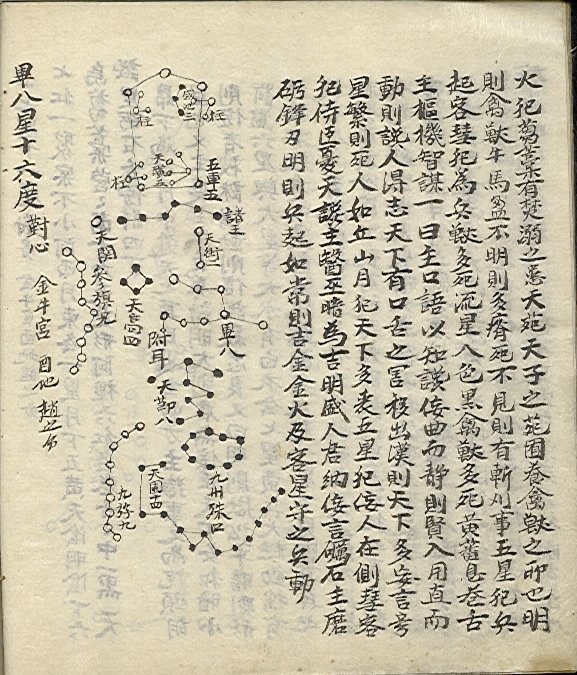 火犯蒭藁有焚溺之患天苑天子之苑囿養禽獸之所也明
則禽獸牛馬盈不明則多瘠死不見則有斬刈事五星犯兵
起客彗犯為兵獸多死流星入色黑禽獸多死黃舊息卷舌
主樞機智謀一曰主口語以知讒佞曲而靜則賢人用直而
動則讒人得志天下有口舌之害移出漢則天下多妄言号
星繁則死人如丘山月犯天下多喪五星犯佞人在側彗客
犯侍臣憂天讒主醫巫暗為吉明盛人君納佞言礪石主磨
砺鋒刃明則兵起如常則吉金金火及客星守之兵動
咸池三
柱
柱
天潢五
柱
五車五
諸王
天街一
天関
參旗九
天高四
畢八
附耳
天節八
九州殊口
天園十四
九斿九
畢八星十六度
對心
金牛宮
酉地
趙分